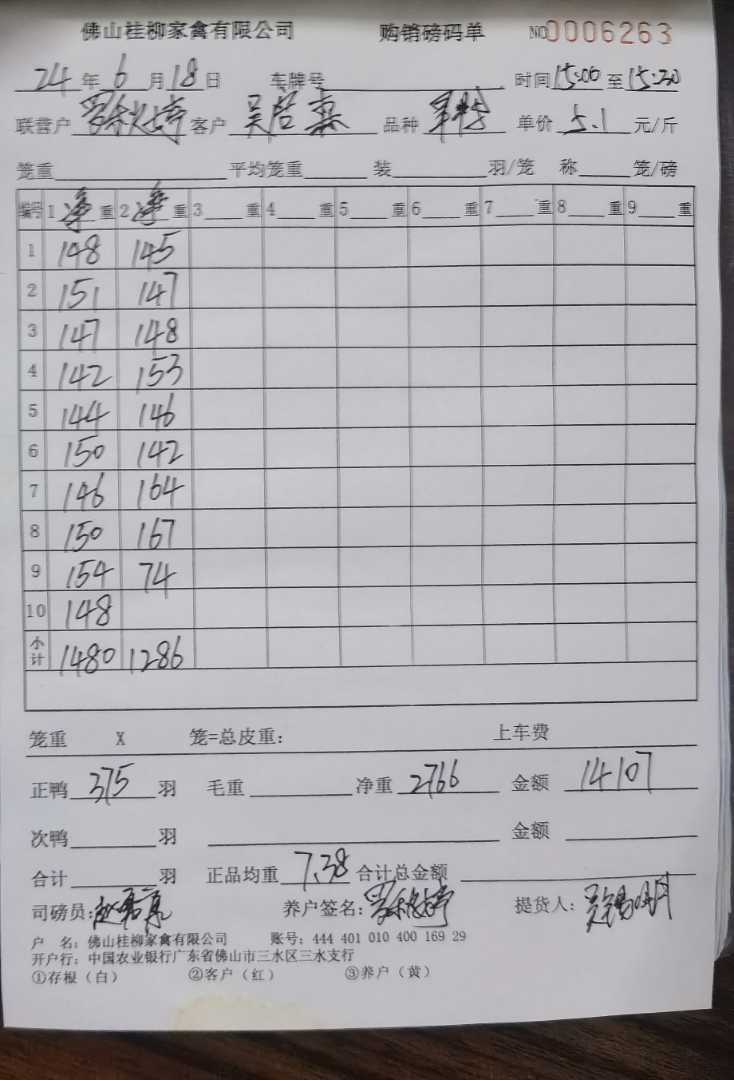 佛山桂柳家禽有限公司 购销磅码单 NO0006263
24年6月18日 车牌号 时间15:00至15:20
联营户 客户 品种 单价5.1元/斤
笼重 平均笼重 装 羽/笼 称 笼/磅
编号 1净重 2净重 3 重 4 重 5 重 6 重 7 重 8 重 9 重
1 148 145
2 151 147
3 147 148
4 142 153
5 144 146
6 150 142
7 146 164
8 150 167
9 154 74
10 148
小计 1480 1286
笼重 X 笼=总皮重: 上车费
正鸭375羽 毛重 净重2766 金额14107
次鸭 羽 金额
合计 羽 正品均重7.38合计总金额
司磅员: 养户签名: 提货人:
户 名: 佛山桂柳家禽有限公司 账号: 444 401 010 400 169 29
开户行: 中国农业银行广东省佛山市三水区三水支行
①存根(白) ②客户(红) ③养户(黄)